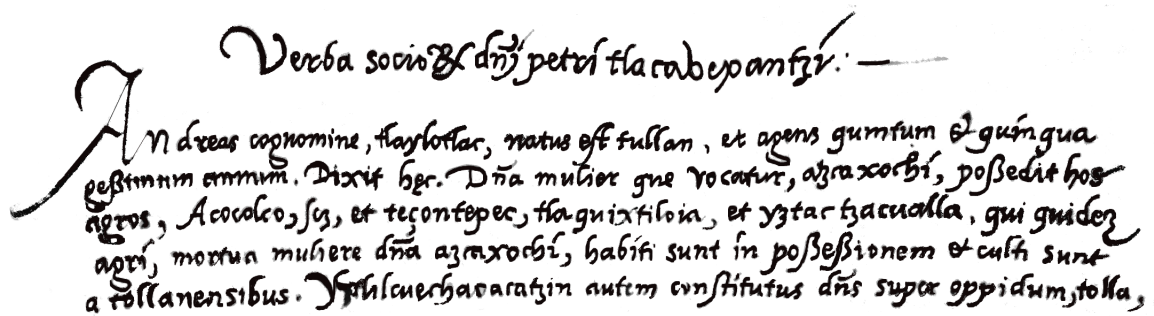 Verba socioꝝ dñi petri tlacahepantzi. —
Andreas cognomine, tlaylotlac, natus est tullan, et agens quintum & quinqua
geßimum annum. Dixit hęc. Dña mulier que vocatur, azcaxochi, poßedit hos
agros, Acocolco, scz, et teçontepec, tlaquixtiloia, et yztac tzacualla, qui quidez
agri, mortua muliere dña azcaxochi, habiti sunt in poßeßionem et culti sunt
a tollanensibus. autem constitutus dñs super oppidum, tolla,